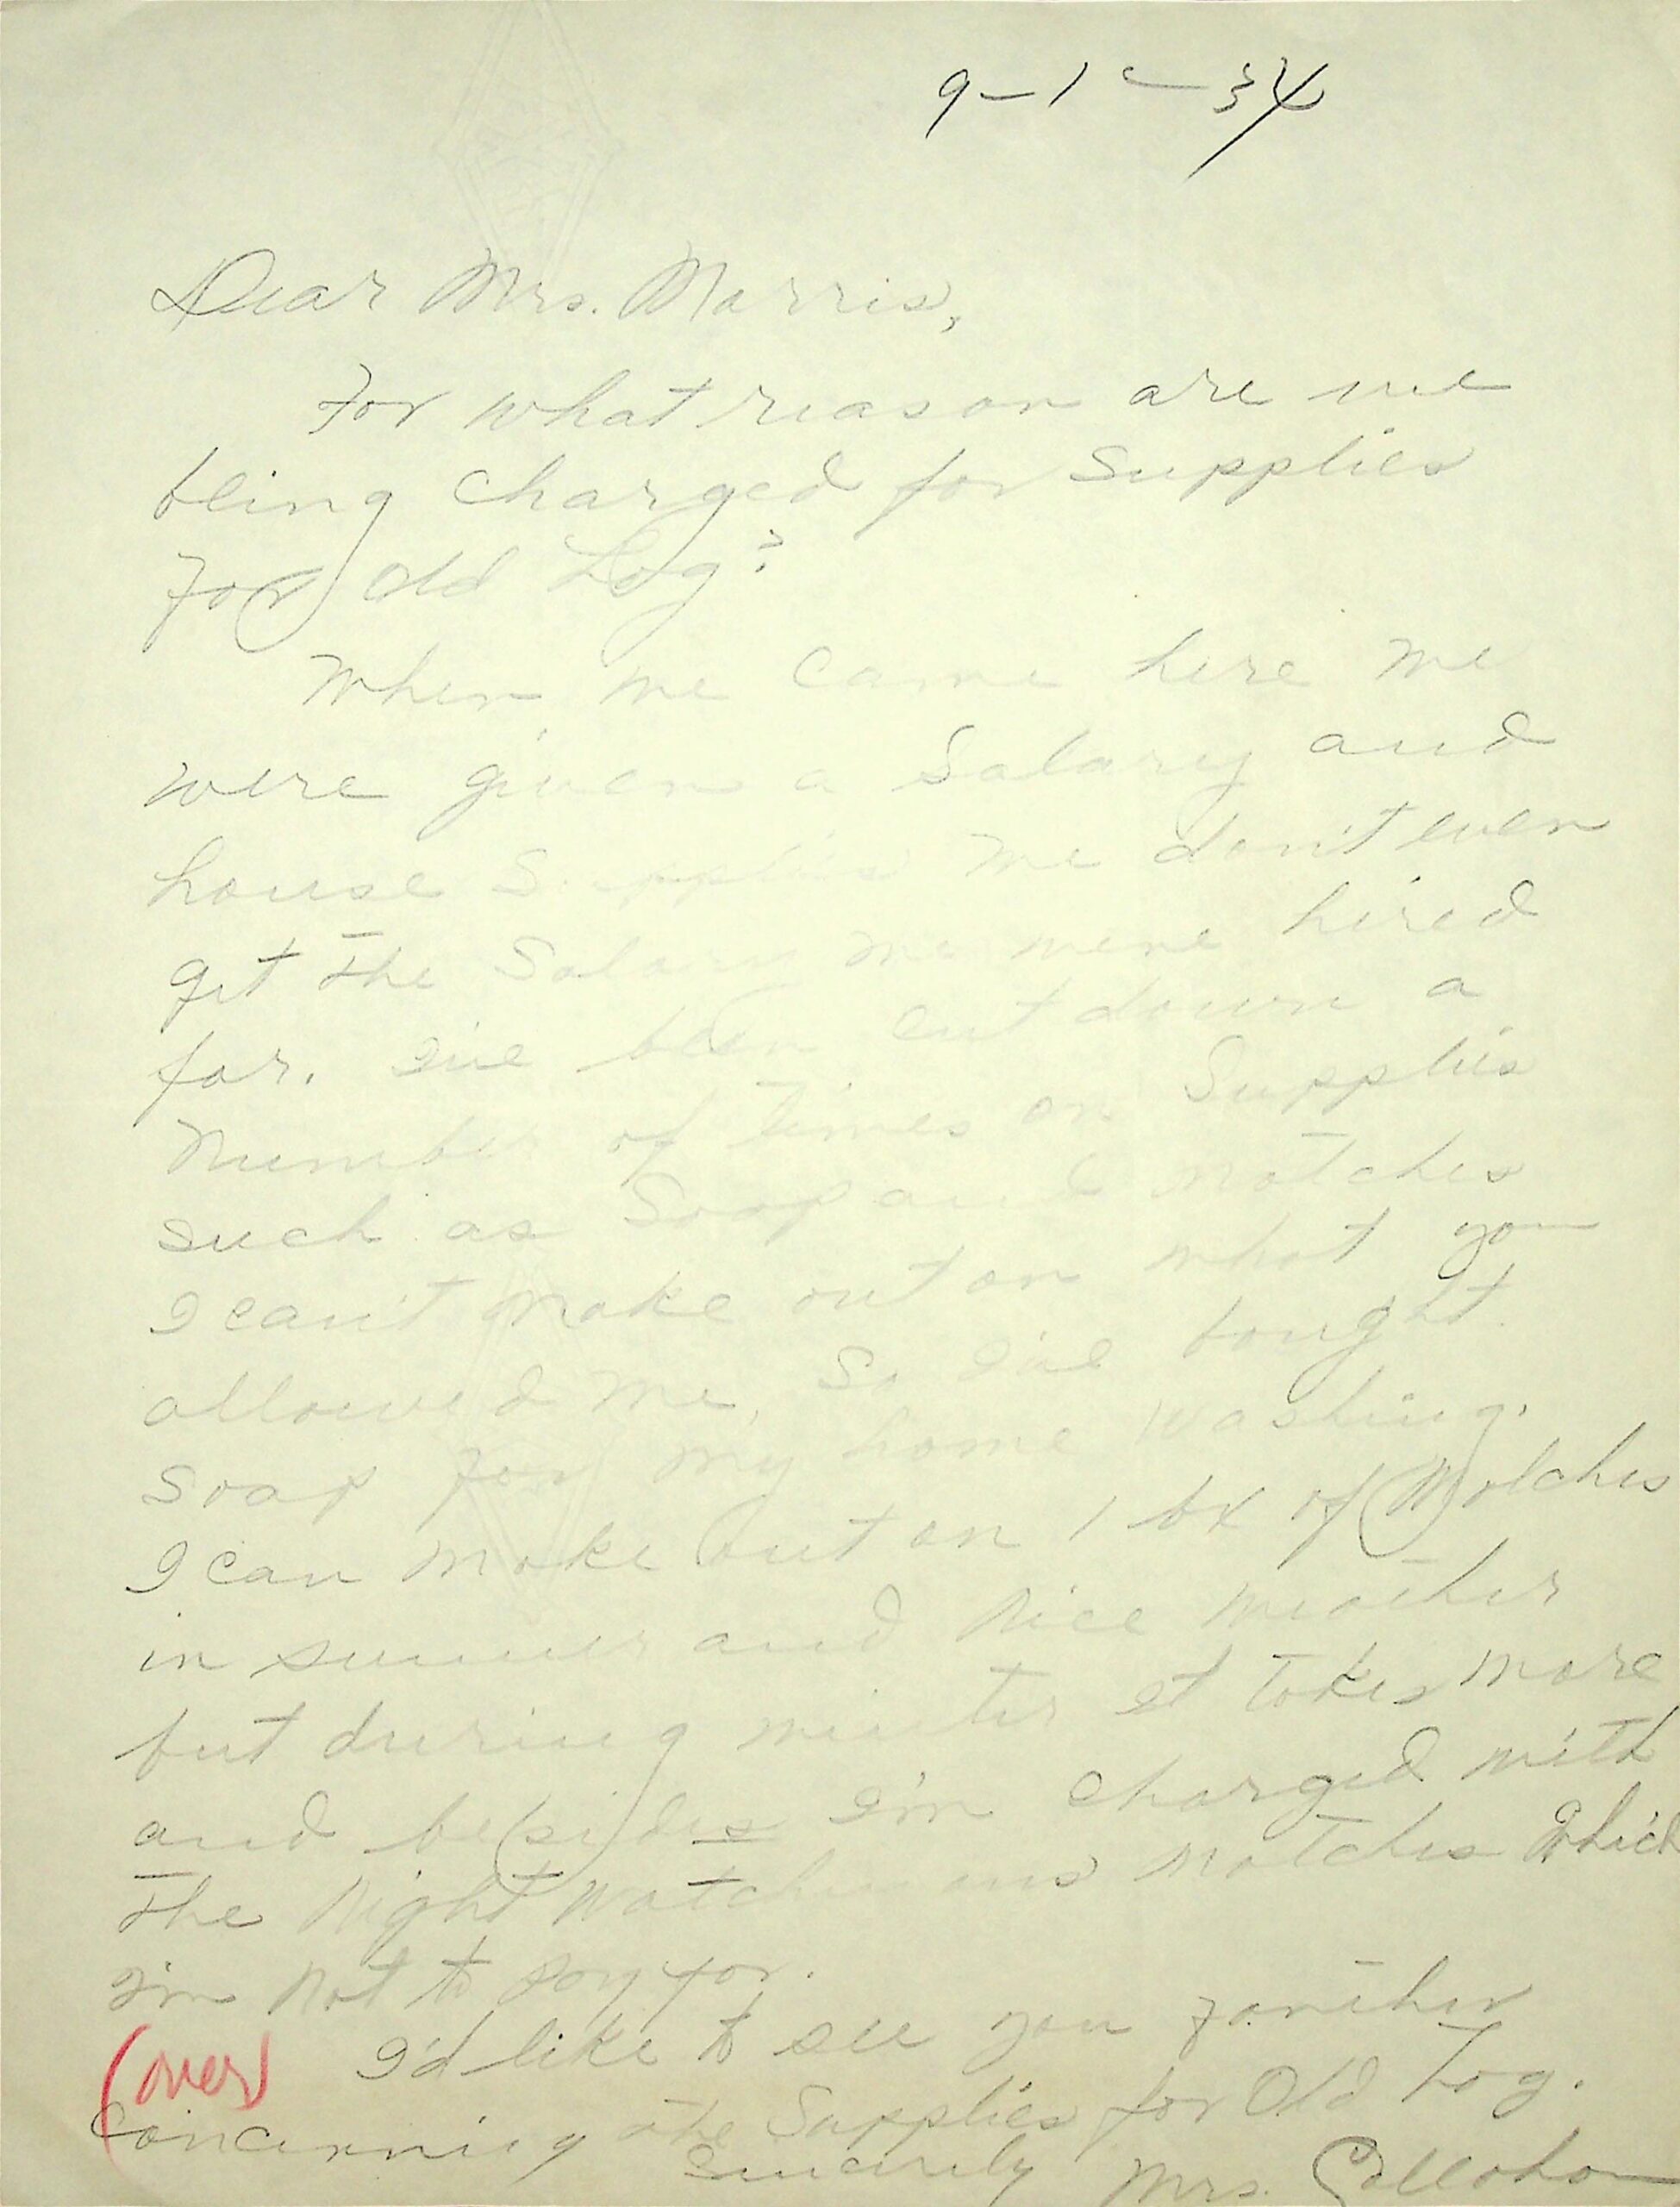 9-1-34
Dear Mrs. Morris,
For what reason are we
being charged for supplies
for Old Log?
When we came here we
were given a salary and
house supplies we don't even
get the salary we were hired
for. I've been cut down a
number of times on supplies
such as soap and matches
I can't make out on what you
allowed me, so I've bought
soap for my home washing.
I can make out on 1 bx of Matches
in summer and nice weather
but during winter it takes more
and besides I'm charged with
the night watchmans matches which
I'm not to pay for.
I'd like to see you further
(over)
concerning the supplies for Old Log.
Sincerely Mrs. Callahan